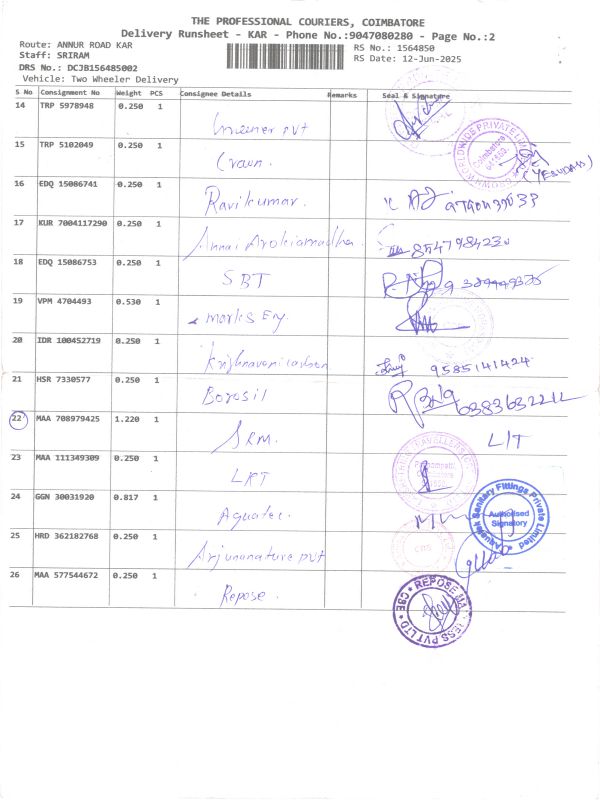 THE PROFESSIONAL COURIERS, COIMBATORE
Delivery Runsheet - KAR - Phone No.:9047080280 - Page No.:2
Route: ANNUR ROAD KAR RS No.: 1564850
Staff: SRIRAM RS Date: 12-Jun-2025
DRS No.: DCJB156485002
Vehicle: Two Wheeler Delivery
S No Consignment No Weight PCS Consignee Details Remarks Seal & Signature
14 TRP 5978948 0.250 1
pvt
15 TRP 5102049 0.250 1
Crown.
16 EDQ 15086741 0.250 1
Ravikumar.
(YESUDAS)
17 KUR 7004117290 0.250 1
Annai 8547984230
18 EDQ 15086753 0.250 1
SBT
19 VPM 4704493 0.530 1
marks Eng.
20 IDR 100452719 8.250 1
9585141424
21 HSR 7330577 0.250 1
Borosil
22 MAA 708979425 1.220 1
SRM. L/T
23 MAA 111349309 0.250 1
LRT
24 GGN 30031920 0.817 1
Aquatec.
Sanitary Fittings Private Limited
Authorised
Signatory
25 HRD 362182768 0.250 1
Arjunanature pvt
26 MAA 577544672 0.250 1
Repose.
REPOSE
ESS PVT LTD
CBE